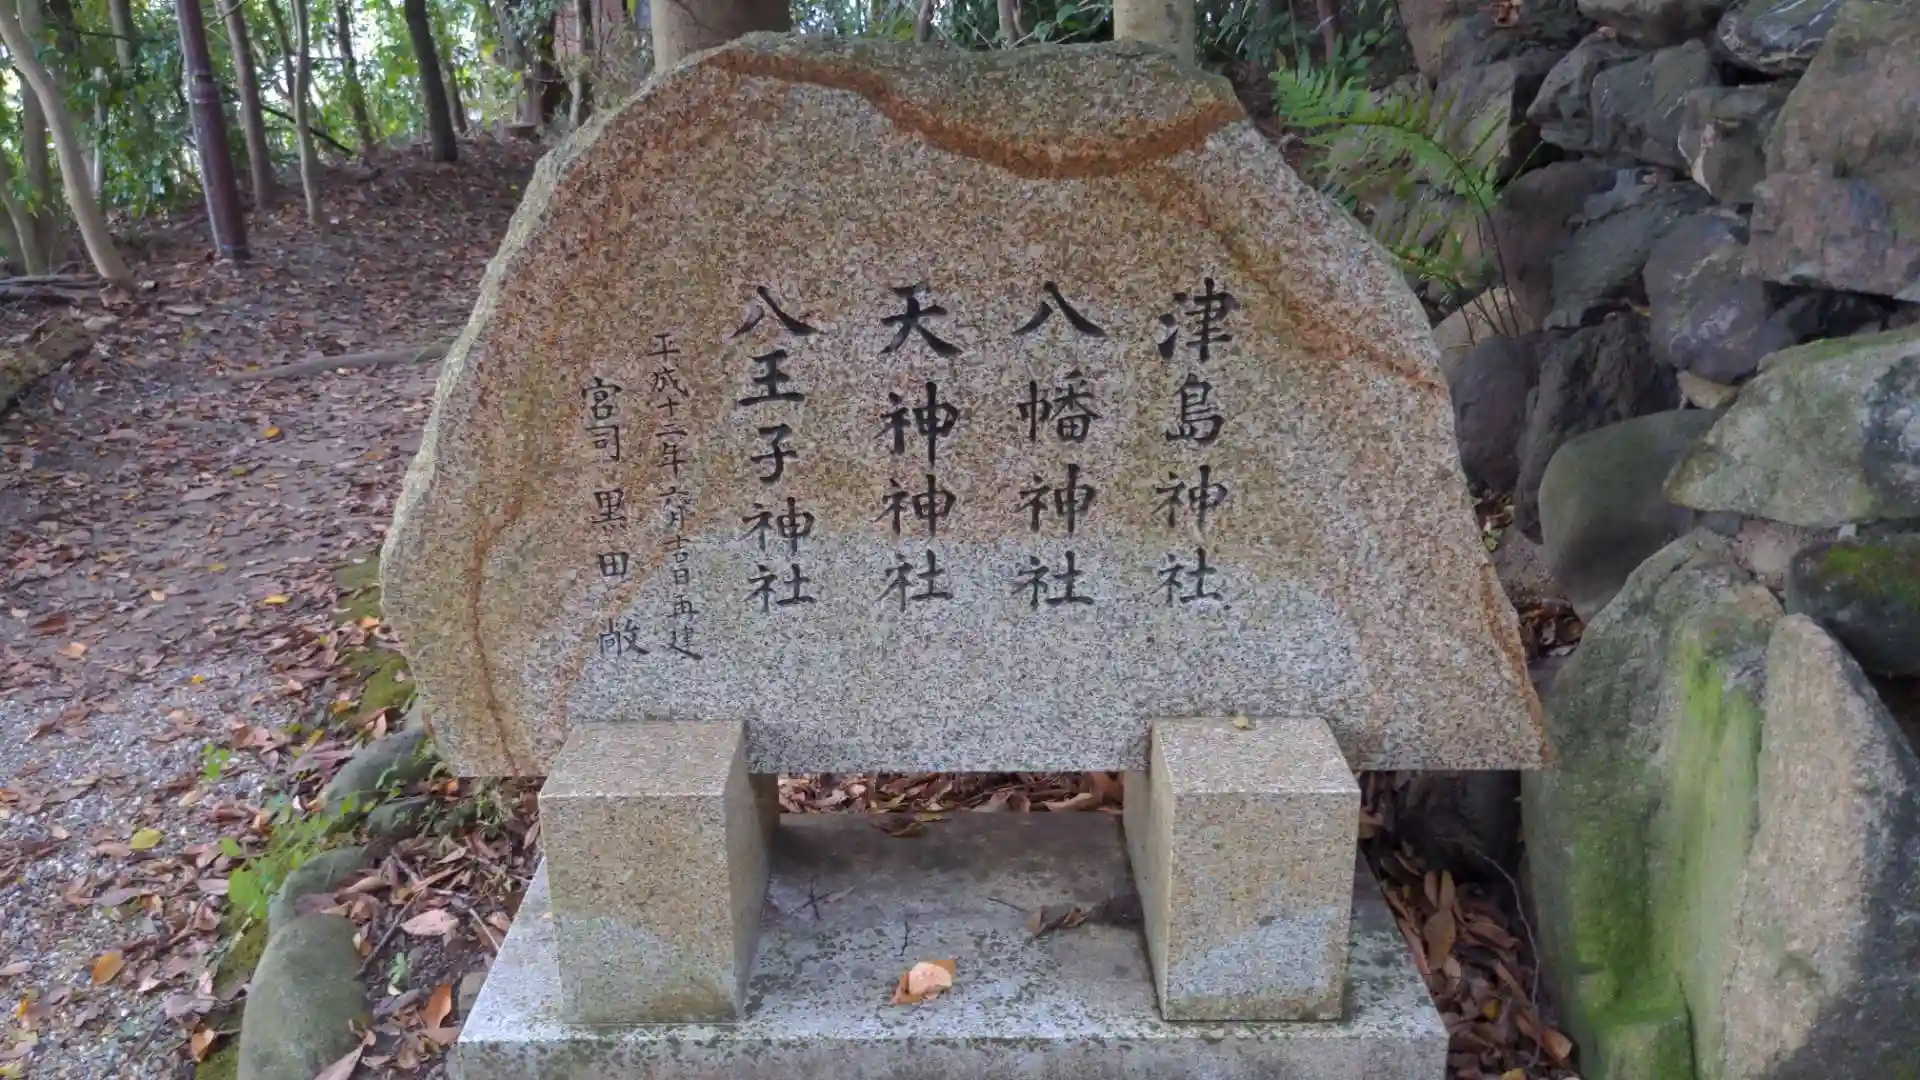 津島神社
八幡神社
天神神社
八王子神社
平成十二年六月吉日再建
宮司 黒田敞